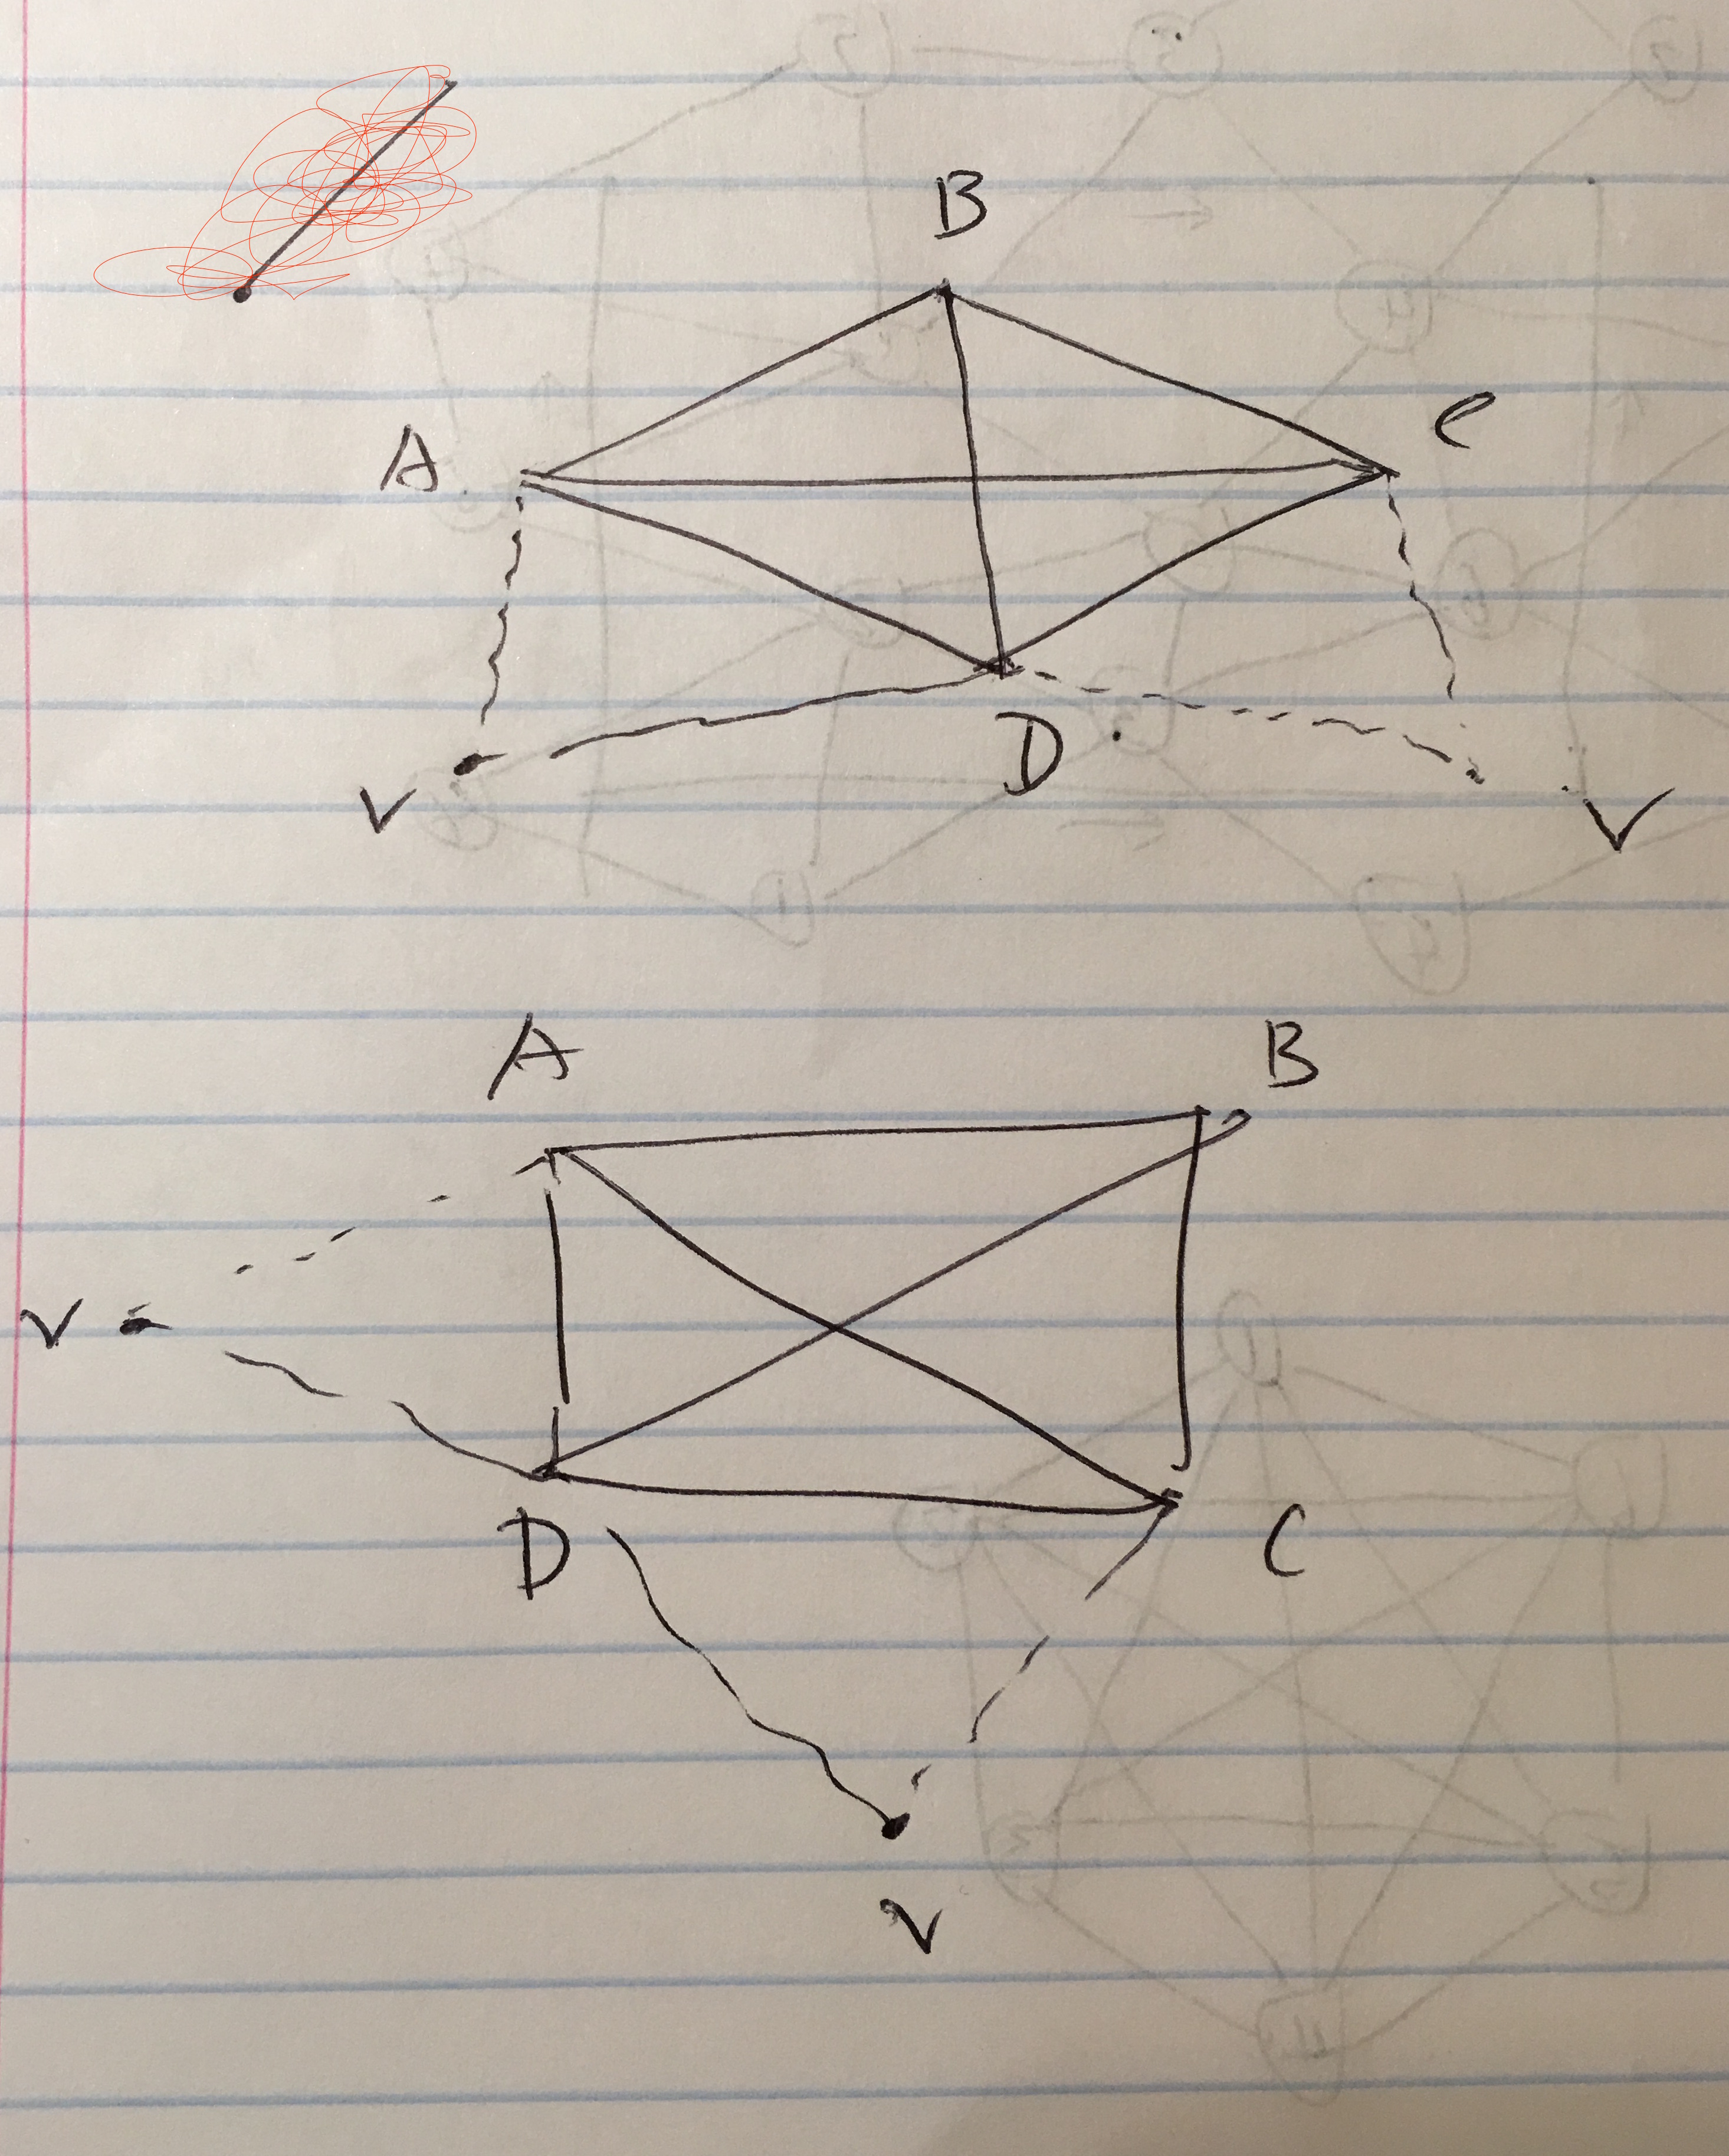 B
A
C
D
V
V
A
B
V
D
C
V